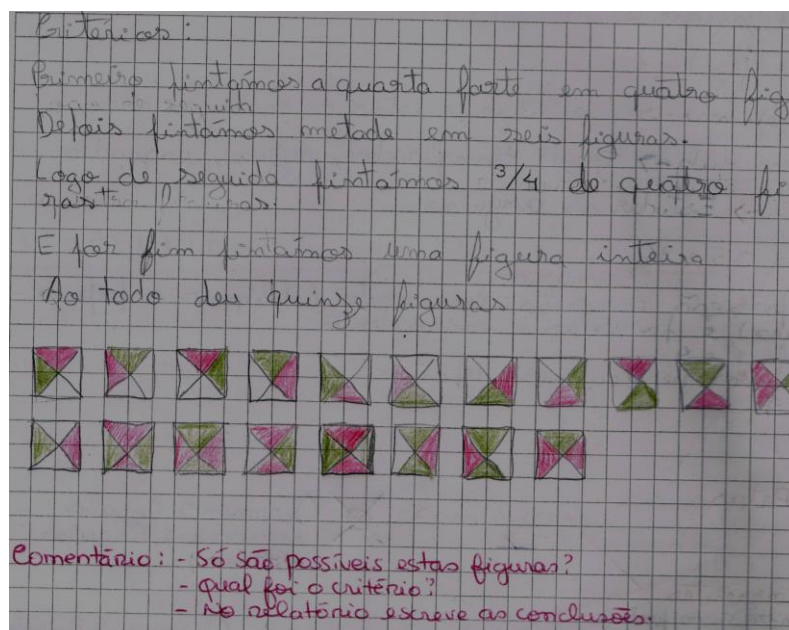 Critérios:
Primeiro pintámos a quarta parte em quatro fig
Depois pintámos metade em seis figuras.
Logo de seguida pintamos 3/4 de quatro fi
E por fim pintámos uma figura inteira
Ao todo deu quinze figuras
Comentário: - Só são possíveis estas figuras?
- Qual foi o critério?
- No relatório escreve as conclusões.